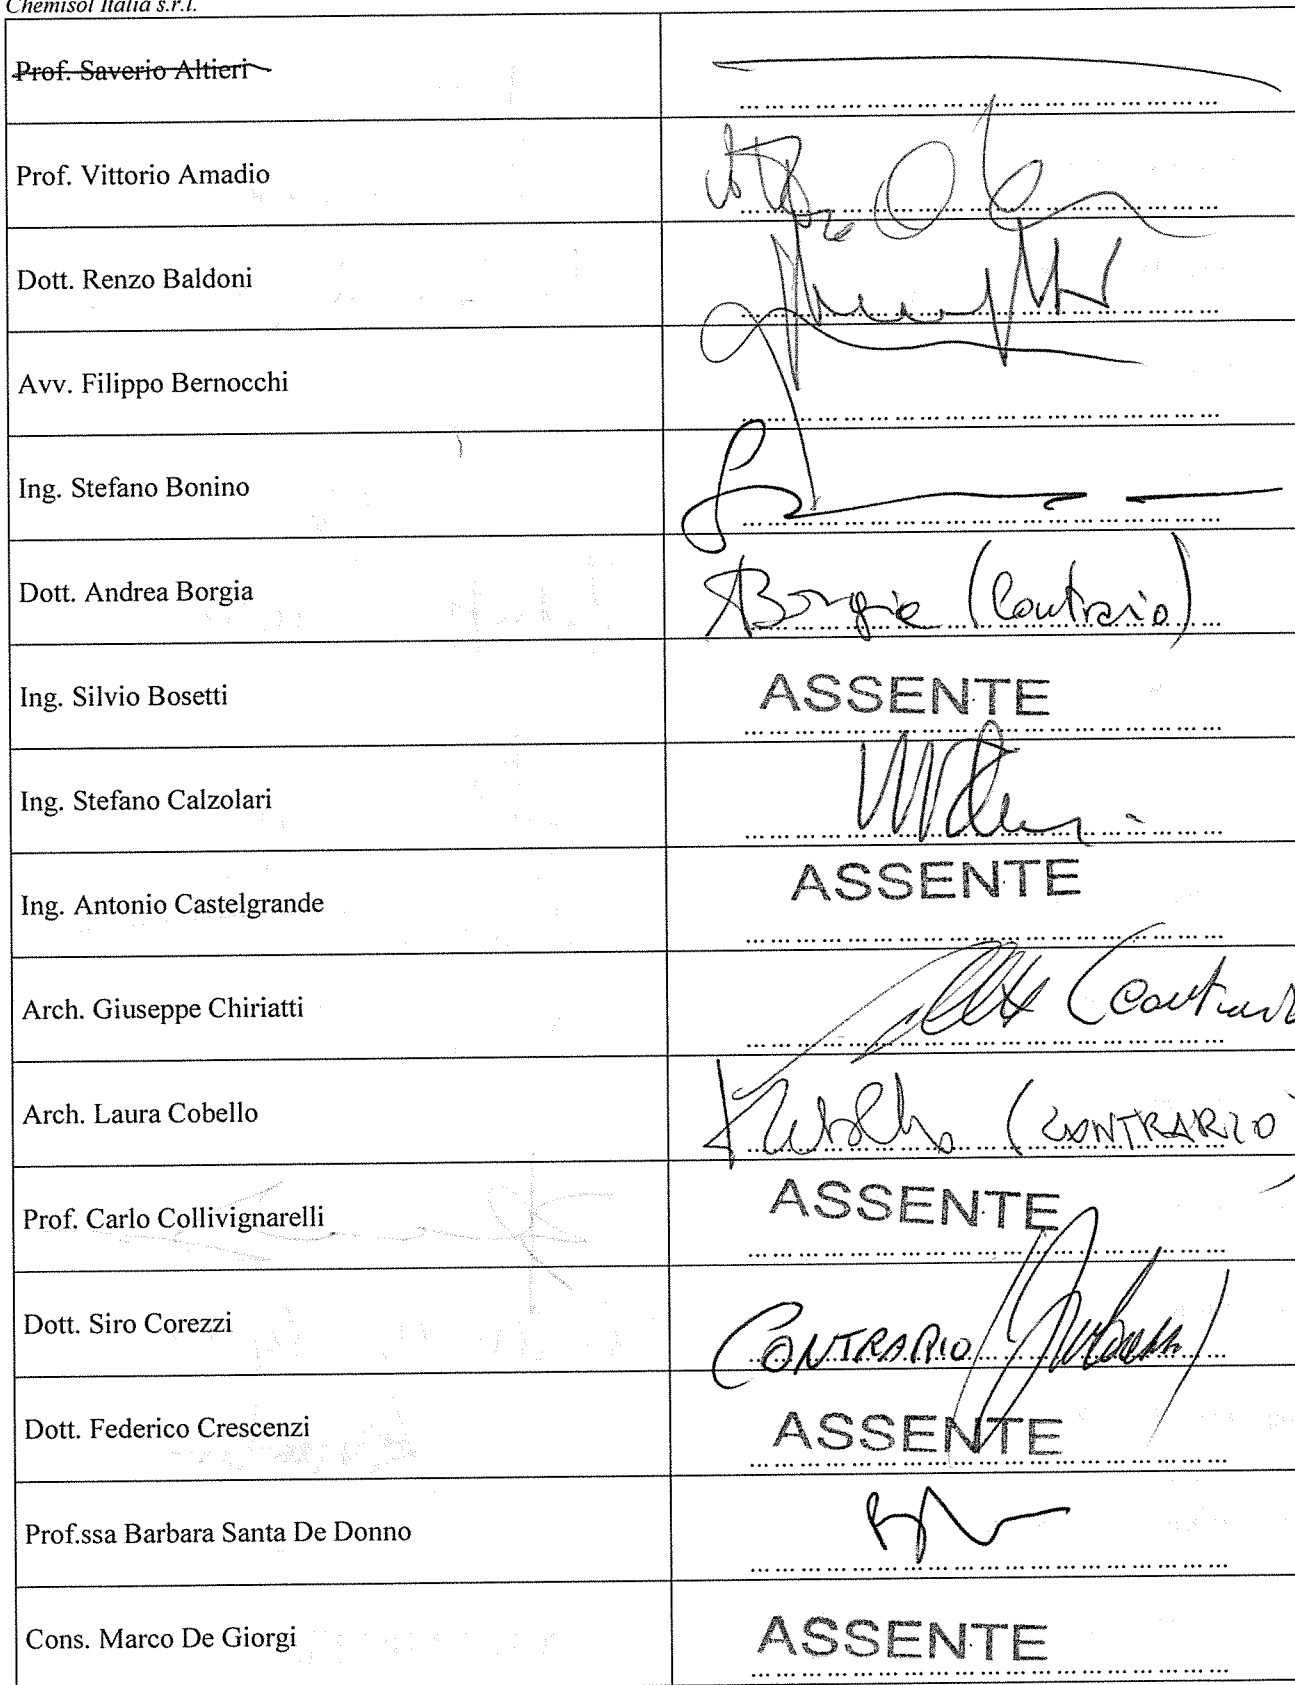 Chemisol Italia s.r.l.
Prof. Saverio Altieri
Prof. Vittorio Amadio
Dott. Renzo Baldoni
Avv. Filippo Bernocchi
Ing. Stefano Bonino
Dott. Andrea Borgia
Borgia (Contrario)
Ing. Silvio Bosetti
ASSENTE
Ing. Stefano Calzolari
Ing. Antonio Castelgrande
ASSENTE
Arch. Giuseppe Chiriatti
Arch. Laura Cobello
(CONTRARIO)
Prof. Carlo Collivignarelli
ASSENTE
Dott. Siro Corezzi
CONTRARIO
Dott. Federico Crescenzi
ASSENTE
Prof.ssa Barbara Santa De Donno
Cons. Marco De Giorgi
ASSENTE